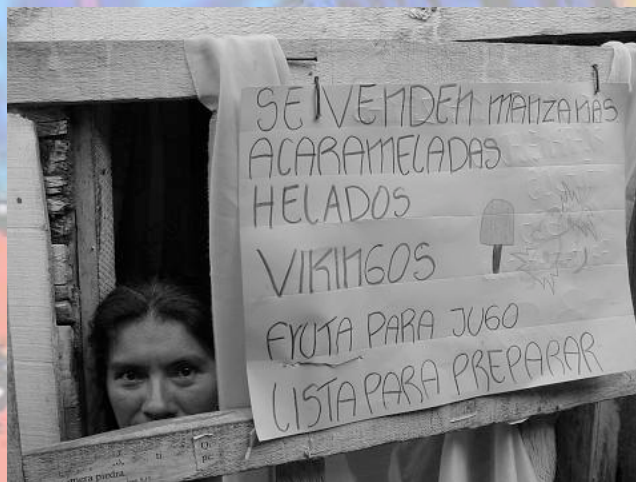 SE VENDEN MANZANAS
ACARAMELADAS
HELADOS
VIKINGOS
FRUTA PARA JUGO
LISTA PARA PREPARAR
mera piedra